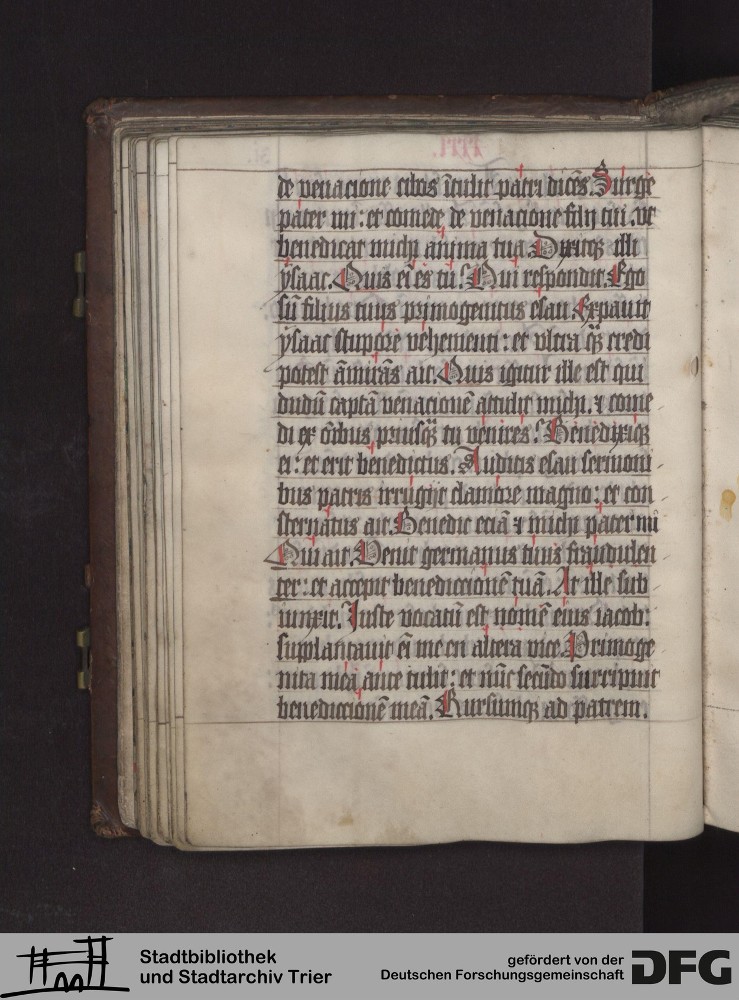 de venacione cibos ītulit patri dicēs. Surge
pater mi : et comede de venacione filij tui . vt
benedicat michj anima tua Dixitqȝ illi
ysaac. Quis eī es tu? Qui respondit. Ego
sū filius tuus primogenitus esau. Expauit
ysaac stupore vehementi : et vltra qȝ credi
potest āmirās ait. Quis igitur ille est qui
dudū captā venacionē attulit michi. ⁊ come
di ex ōībus priusqȝ tu venires? Benedixiqȝ
ei : et erit benedictus. Auditis esau sermoni
bus patris irrugijt clamore magno : et con
sternatus ait. Benedic eciā ⁊ michi pater mi
Qui ait. Venit germanus tuus fraudulen
ter : et accepit benediccionē tuā. At ille sub
iunxit. Juste vocatū est nomē eius iacob :
supplantauit eī me en altera vice. Primoge
nita mea ante tulit : et nūc secūdo surripuit
benediccionē meā. Rursumqȝ ad patrem.
Stadtbibliothek
und Stadtarchiv Trier
gefördert von der
Deutschen Forschungsgemeinschaft
DFG